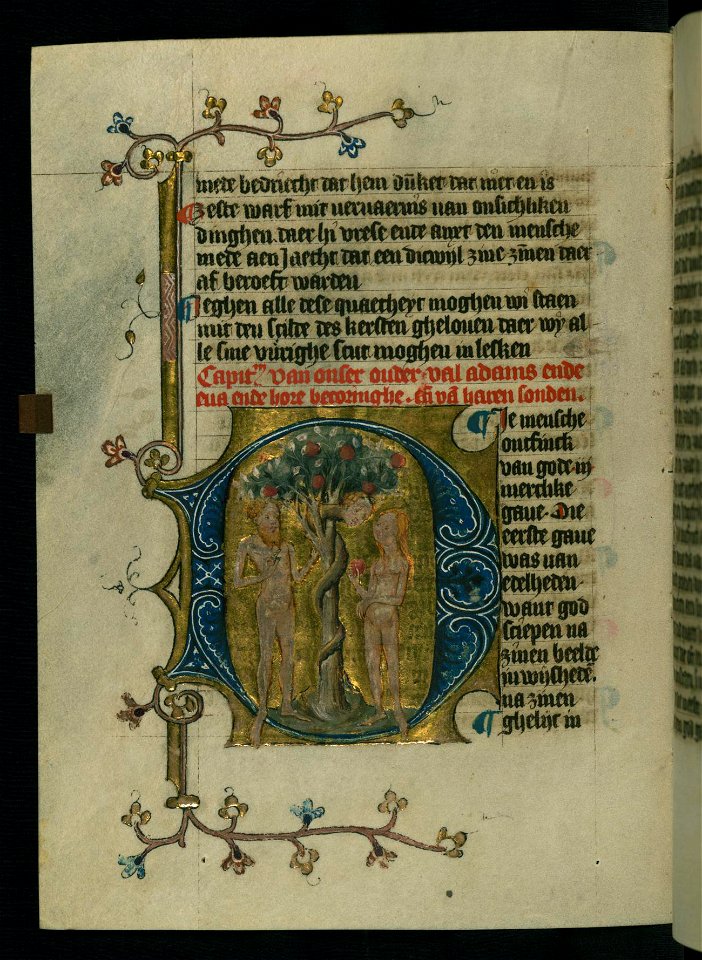 mede bedriecht dat hem dūket dat niet en is
Zeste warf mit vervaernis van onsichliken
dinghen. daer hi vrese ende anxt den mensche
mede aen Jaecht dat een dicwijl zine zīnen daer
af beroeft warden
Jeghen alle dese quaetheyt moghen wi staen
mit den scilde des kersten ghelouen daer wy al
le sine vūrighe scut moghen in lesken
Capitm van onser ouder val adams ende
eua ende hoze becozinghe. eñ vā haren sonden.
Die mensche
ontfinck
van gode iij
merclike
gaue. Die
eerste gaue
was van
edelheden
want god
sciepen na
zinen beelde
in wijshede.
na zinen
ghelijc in